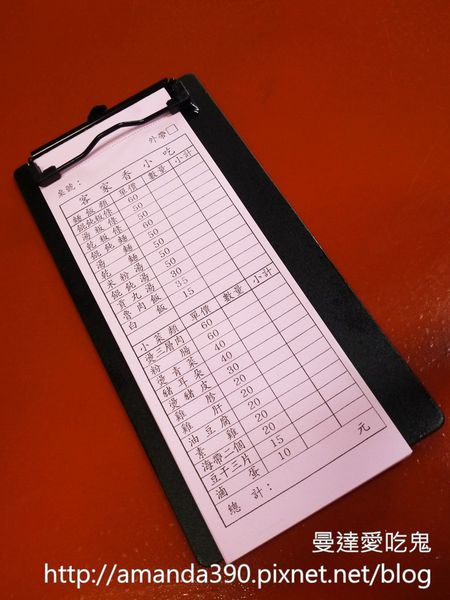 桌號： 外帶□
客家香小吃
麵板類 單價 數量 小計
餛飩板條 60
湯板條 50
乾板條 50
餛飩麵 60
湯麵 50
乾麵 50
米粉湯 50
餛飩湯 50
貢丸湯 30
魯肉飯 35
白飯 15
小菜類 單價 數量 小計
燙三層肉 60
粉腸 60
燙青菜 40
燙豬耳朵 40
燙豬皮 30
雞胗 20
雞肝 20
油豆腐 20
素雞 20
海帶二個 20
豆干三片 15
滷蛋 10
總計： 元
曼達愛吃鬼
http://amanda390.pixnet.net/blog